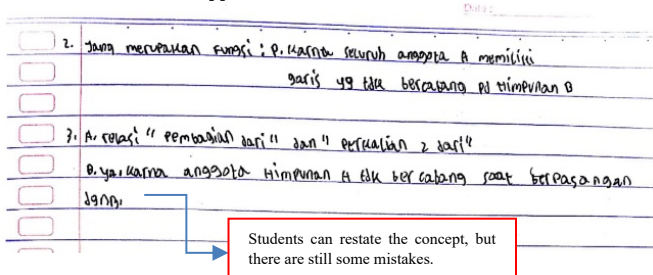 2. Yang merupakan fungsi : P. karna seluruh anggota A memiliki
garis yg tdk bercabang pd Himpunan B
3. A. relasi " pembagian dari " dan " perkalian 2 dari "
B. ya, karna anggota Himpunan A tdk bercabang saat berpasangan
dgn B.
Students can restate the concept, but
there are still some mistakes.